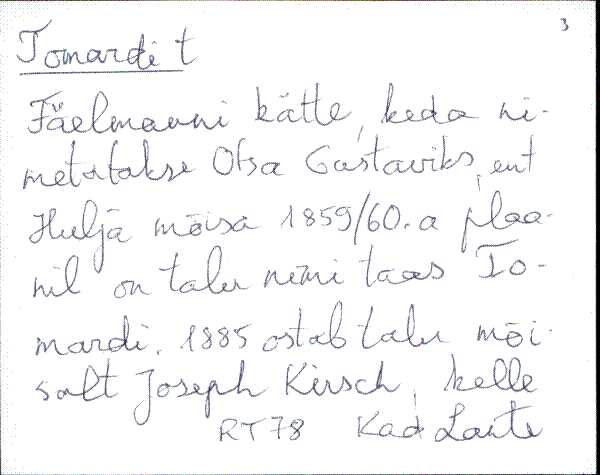 3
Tomardi t
Fäelmanni kätte, keda ni-
metatakse Otsa Gustaviks, ent
Huljä mõisa 1859/60.a plaa-
nil on talu nimi taas To-
mardi. 1885 ostab talu mõi-
salt Joseph Kirsch, kelle
RT 78 Kad